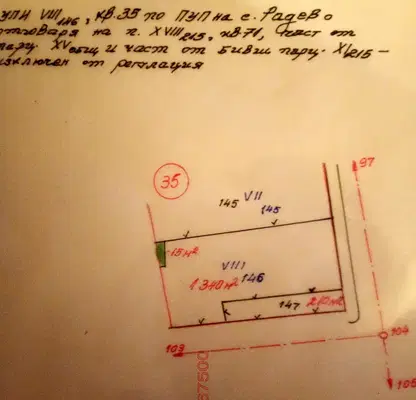 УПИ VIII 146, кв. 35 по ПУП на с. Радево
отговаря на п. XVIII 215, кв. 71, част от
парц. XV общ. и част от бивш парц. XI 215 –
изключен от регулация
35
97
VII
145 145
15 м²
VIII
1340 м² 146
147 210 м²
103
104
105
87500